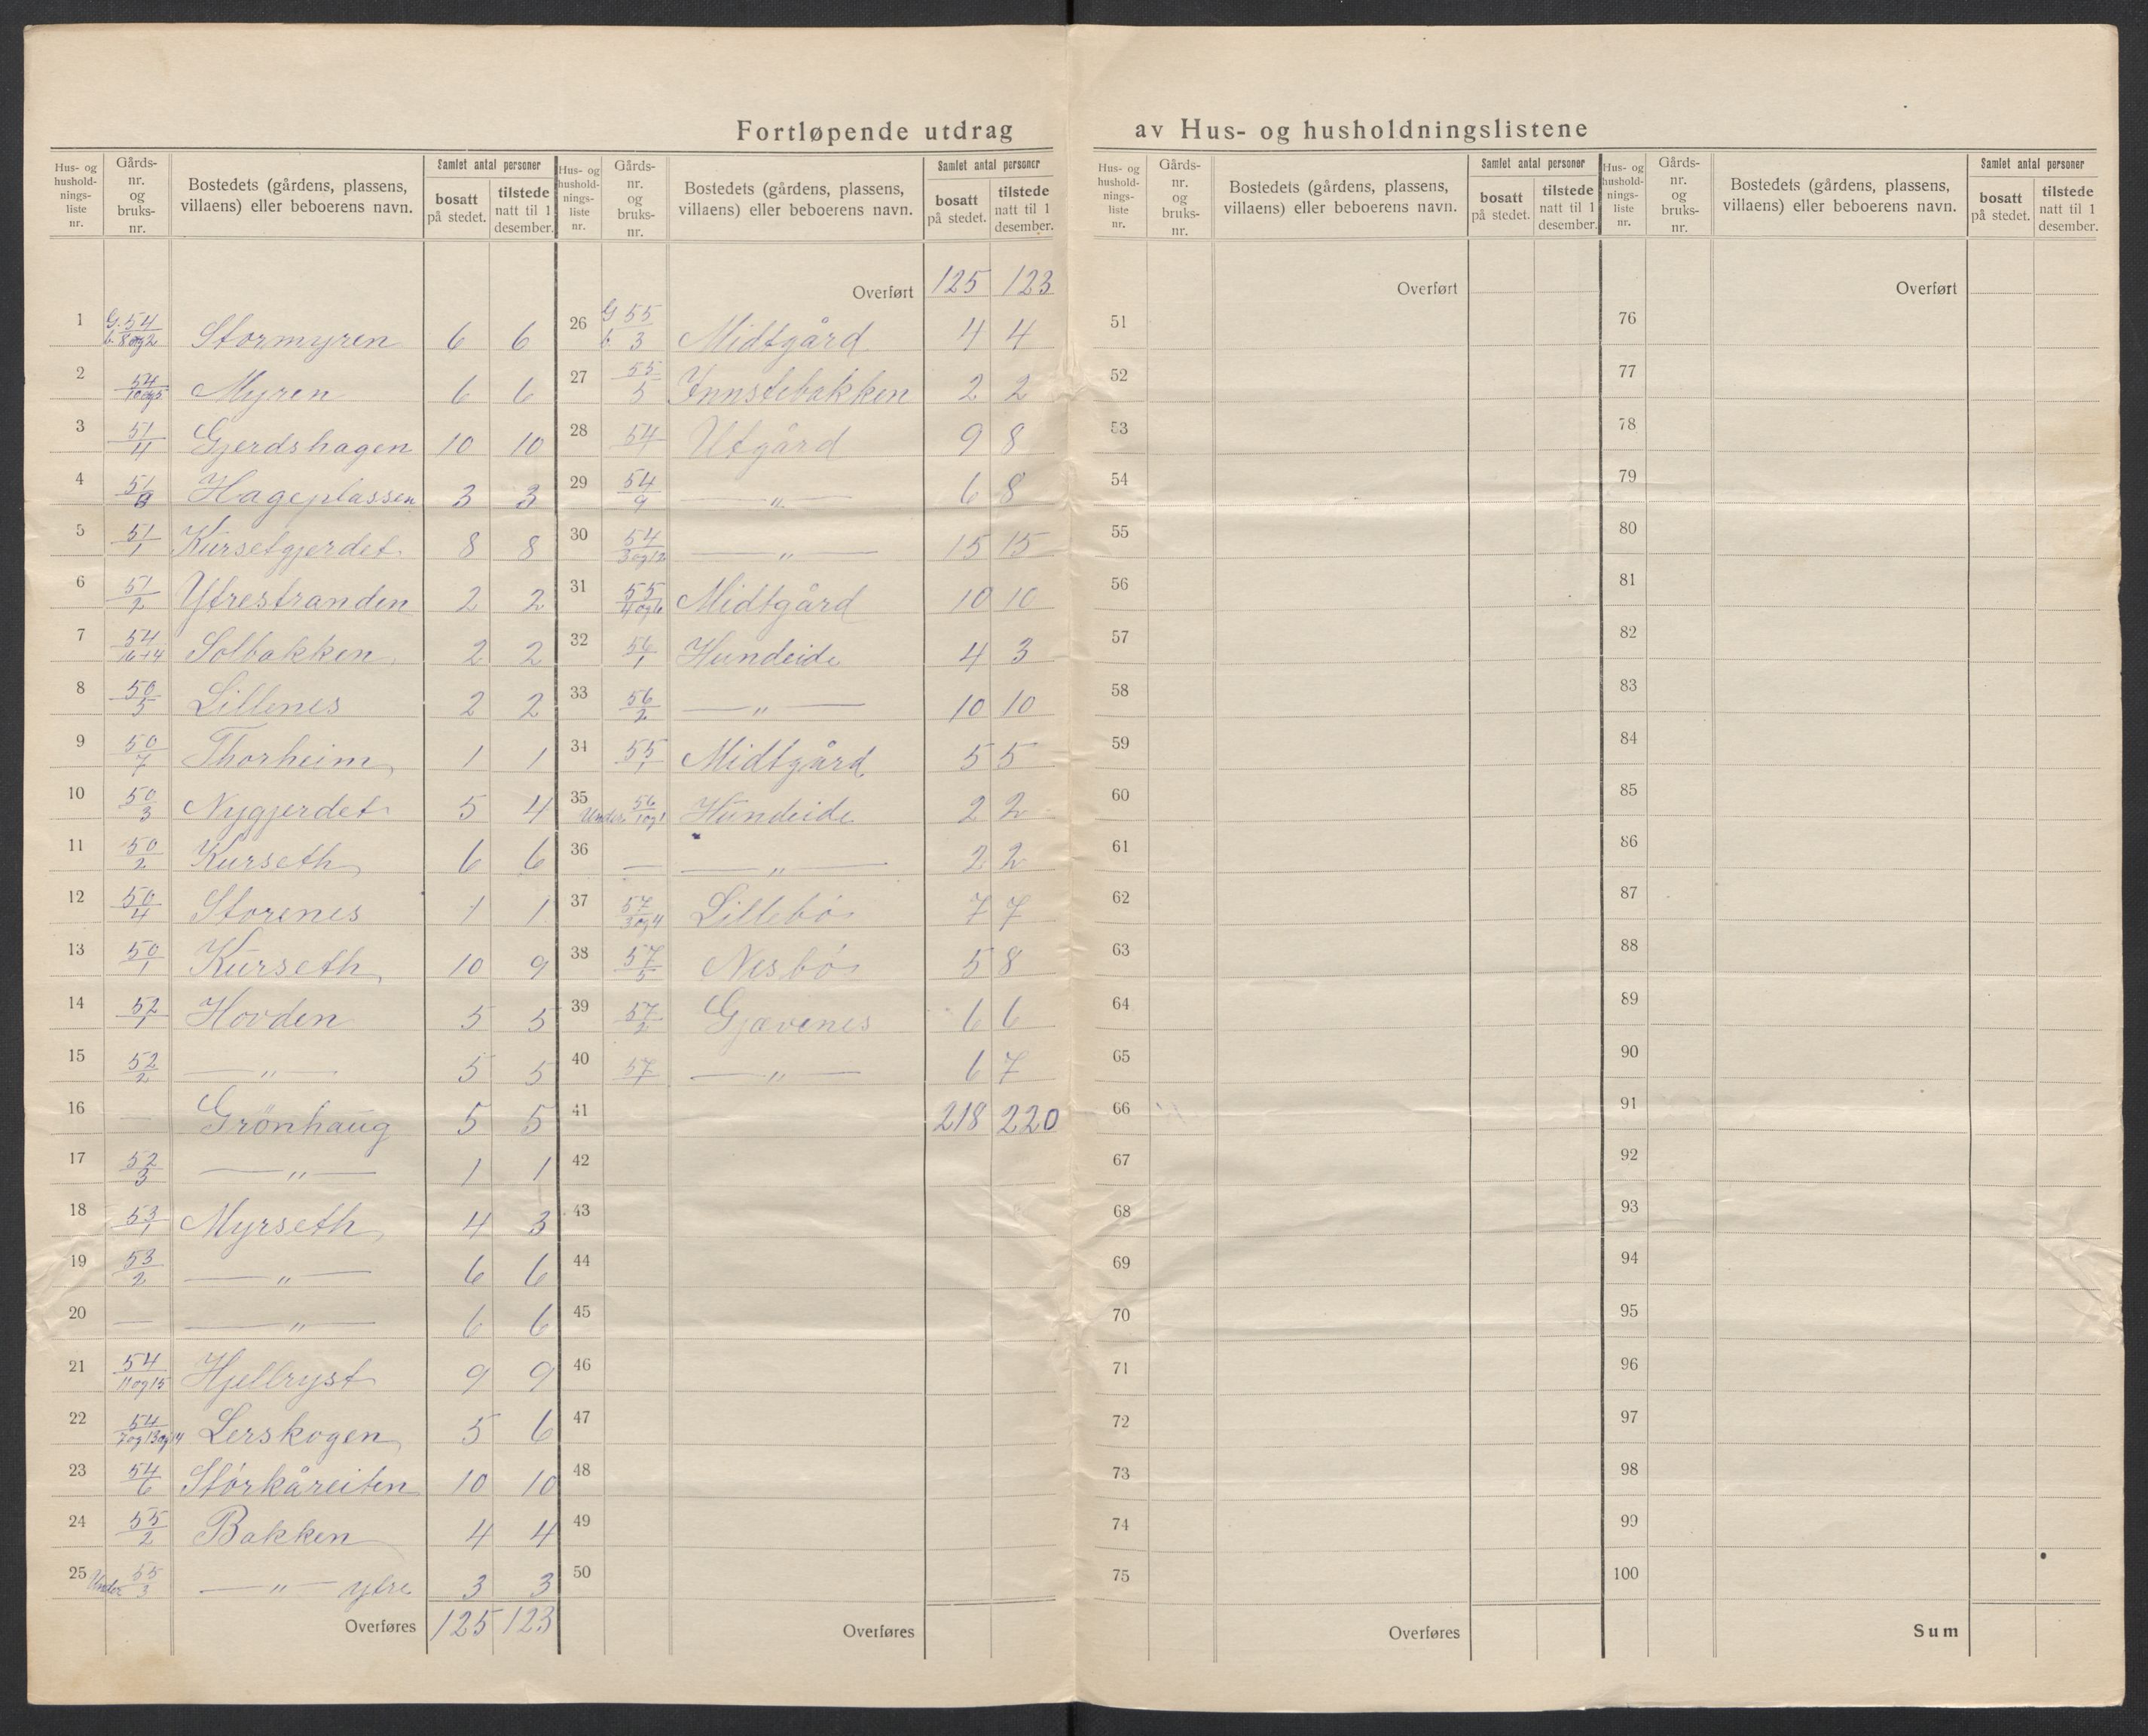 Fortløpende utdrag av Hus- og husholdningslistene
Hus- og hushold-nings-liste nr. Gårds-nr. og bruks-nr. Bostedets (gårdens, plassens, villaens) eller beboerens navn. Samlet antal personer bosatt på stedet. tilstede natt til 1 desember.
1 G. 54 b. 8 og 2 Stormyren 6 6
2 54/10 og 5 Myren 6 6
3 51/4 Gjerdshagen 10 10
4 51/ Hageplassen 3 3
5 51/1 Kursetgjerdet 8 8
6 51/2 Ytrestranden 2 2
7 54/16+4 Solbakken 2 2
8 50/5 Lillenes 2 2
9 50/7 Thorheim 1 1
10 50/3 Nygjerdet 5 4
11 50/2 Kurseth 6 6
12 50/4 Storenes 1 1
13 50/1 Kurseth 10 9
14 52/1 Hovden 5 5
15 52/2 — " — 5 5
16 — Grönhaug 5 5
17 52/3 — " — 1 1
18 53/1 Myrseth 4 3
19 53/2 — " — 6 6
20 — — " — 6 6
21 54/11 og 15 Hjellryst 9 9
22 54/7 og 13 og 14 Lerskogen 5 6
23 54/6 Störkåreiten 10 10
24 55/2 Bakken 4 4
25 Under 55/3 — " — ytre 3 3
Overføres 125 123
Hus- og hushold-nings-liste nr. Gårds-nr. og bruks-nr. Bostedets (gårdens, plassens, villaens) eller beboerens navn. Samlet antal personer bosatt på stedet. tilstede natt til 1 desember.
Overført 125 123
26 G 55 b. 3 Midtgård 4 4
27 55/5 Innstebakken 2 2
28 54/ Utgård 9 8
29 54/9 — " — 6 8
30 54/3 og 12 — " — 15 15
31 55/4 og 6 Midtgård 10 10
32 56/1 Hundeide 4 3
33 56/2 — " — 10 10
34 55/1 Midtgård 5 5
35 Under 56/1 og 1 Hundeide 2 2
36 — — " — 2 2
37 57/3 og 4 Lillebö 7 7
38 57/5 Nesbö 5 8
39 57/2 Gjævenes 6 6
40 57/ — " — 6 7
41 218 220
42
43
44
45
46
47
48
49
50
Overføres
Hus- og hushold-nings-liste nr. Gårds-nr. og bruks-nr. Bostedets (gårdens, plassens, villaens) eller beboerens navn. Samlet antal personer bosatt på stedet. tilstede natt til 1 desember.
Overført
51
52
53
54
55
56
57
58
59
60
61
62
63
64
65
66
67
68
69
70
71
72
73
74
75
Overføres
Hus- og hushold-nings-liste nr. Gårds-nr. og bruks-nr. Bostedets (gårdens, plassens, villaens) eller beboerens navn. Samlet antal personer bosatt på stedet. tilstede natt til 1 desember.
Overført
76
77
78
79
80
81
82
83
84
85
86
87
88
89
90
91
92
93
94
95
96
97
98
99
100
Sum